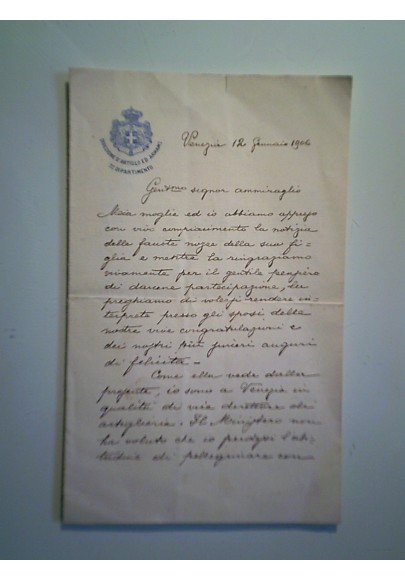 DIREZIONE D'ARTIGLIERIA ED ARMAMENTI
3º DIPARTIMENTO
Venezia 12 Gennaio 1906
signor ammiraglio
Mia moglie ed io abbiamo appreso
con vivo compiacimento la notizia
delle fauste nozze della sua fi-
glia e mentre la ringraziamo
vivamente per il gentile pensiero
di darcene partecipazione, la
preghiamo di volersi rendere in-
terprete presso gli sposi delle
nostre vive congratulazioni e
dei nostri più sinceri auguri
di felicità –
Come ella vede dalla
presente, io sono a Venezia in
qualità di vice direttore di
artiglieria. Il Ministero non
ha voluto che io perdessi l'abi-
tudine di pellegrinare con